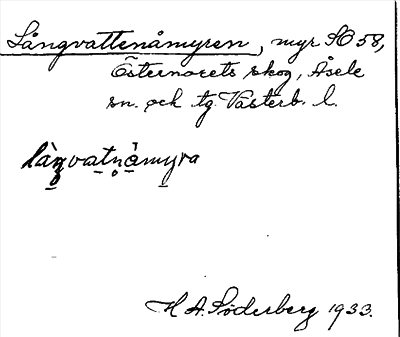 Långvattenåmyren, myr SO 58,
Östernorets skog, Åsele
sn. och tg. Västerb. l.
làŋvatn̥åmyra
H A. Söderberg 1933.